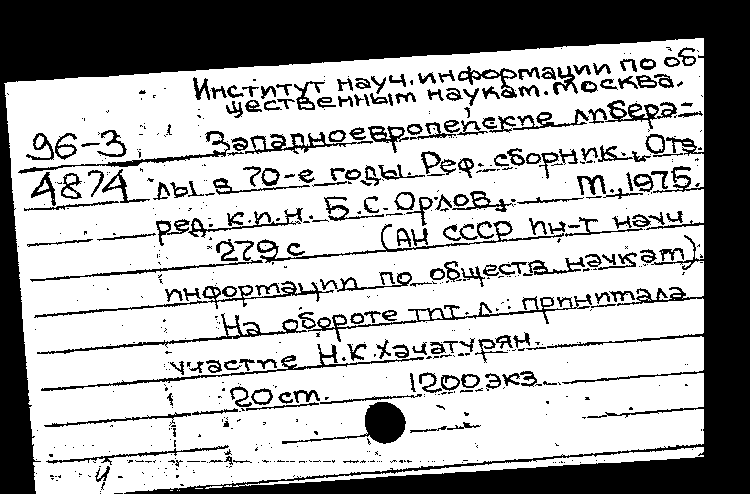 Институт науч. информации по об-
щественным наукам. Москва.
96-3
Западноевропейские либера-
4874
лы в 70-е годы. Реф. сборник. Отв.
ред. к.и.н. Б.С. Орлов. М., 1975.
279 с (АН СССР Ин-т науч.
информации по обществ. наукам).
На обороте тит. л.: принимала
участие Н.К. Хачатурян.
20 см. 1200 экз.